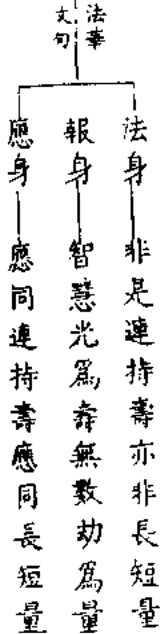 法華
文句
法身—非是連持壽亦非長短量
報身—智慧光爲壽無數劫爲量
應身—應同連持壽應同長短量